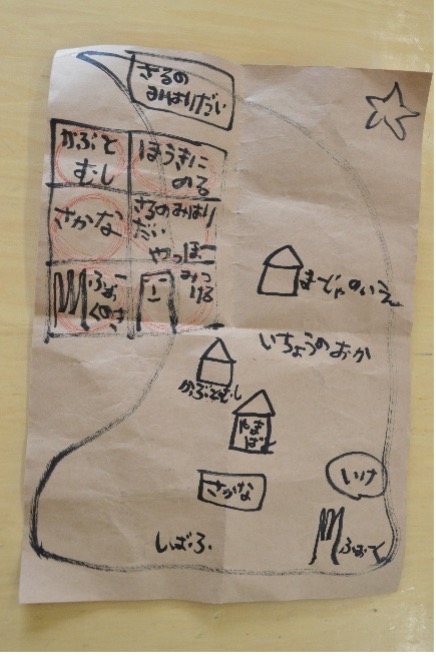 さるの
みはりだい
かぶと
むし
ほうきに
のる
さかな
さるのみはり
だい
やっほー
ふぉー
くのさ
みつ
ける
まーじゃのいえ
いちょうのおか
かぶとむし
やま
ばと
さかな
いけ
しばふ
ふぉーく